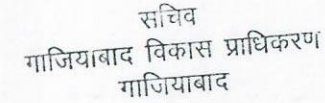 सचिव
गाजियाबाद विकास प्राधिकरण
गाजियाबाद